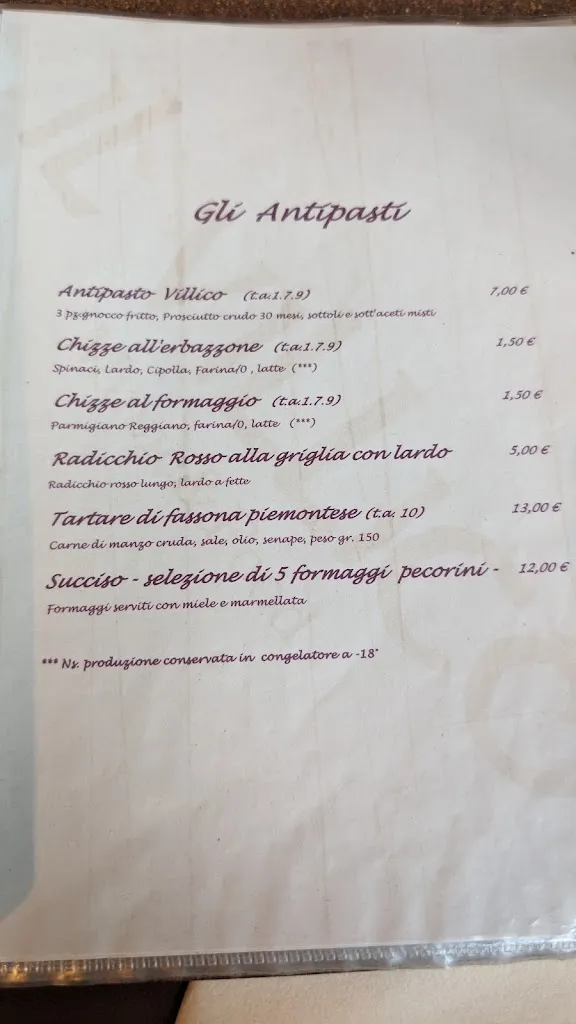 Gli Antipasti
Antipasto Villico (t.a.1.7.9) 7,00 €
3 pz.gnocco fritto, Prosciutto crudo 30 mesi, sottoli e sott'aceti misti
Chizze all'erbazzone (t.a.1.7.9) 1,50 €
Spinaci, Lardo, Cipolla, Farina/0 , latte (***)
Chizze al formaggio (t.a.1.7.9) 1,50 €
Parmigiano Reggiano, farina/0, latte (***)
Radicchio Rosso alla griglia con lardo 5,00 €
Radicchio rosso lungo, lardo a fette
Tartare di fassona piemontese (t.a. 10) 13,00 €
Carne di manzo cruda, sale, olio, senape, peso gr. 150
Succiso - selezione di 5 formaggi pecorini - 12,00 €
Formaggi serviti con miele e marmellata
*** Ns. produzione conservata in congelatore a -18°